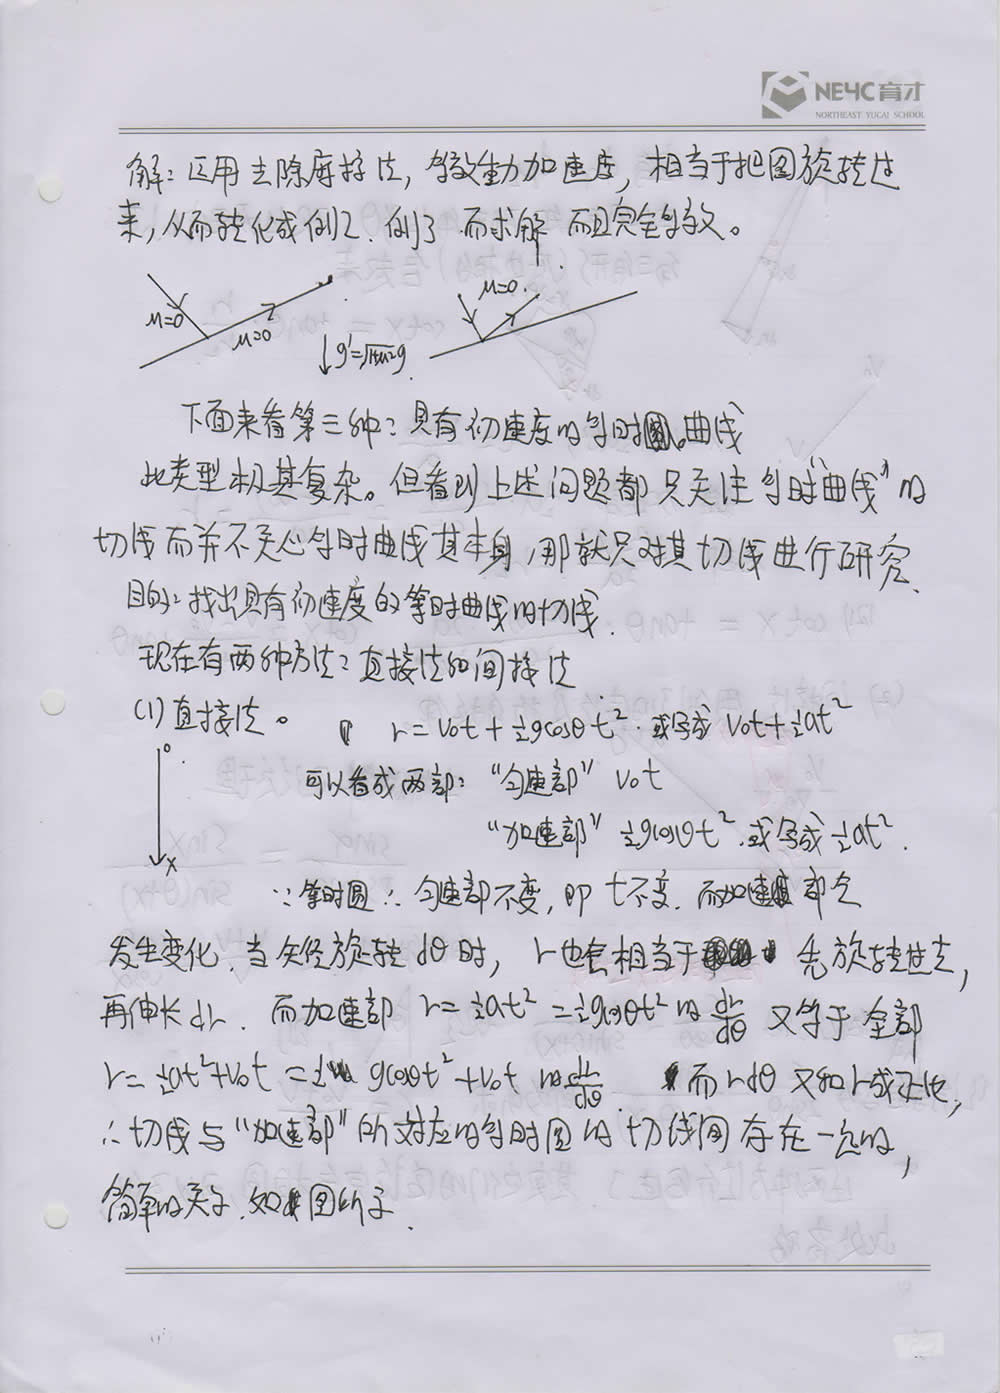 NEYC育才
NORTHEAST YUCAI SCHOOL
解：运用去除摩擦法，等效重力加速度，相当于把图旋转过
来，从而转化成例2、例3 而求解 而且完全等效。
μ=0
μ=0
g'=√1+μ²g
μ=0
下面来看第三种：具有初速度的等时圆。曲线
此类型极其复杂。但看到上述问题都只关注"等时曲线"的
切线而并不关心等时曲线其本身，那就只对其切线进行研究.
目的：找出具有初速度的等时曲线的切线.
现在有两种方法：直接法和间接法
(1)直接法。
r=v₀t+½gcosθt². 或写成 v₀t+½at²
可以看成两部："匀速部" v₀t
"加速部" ½gcosθt². 或写成½at².
0
x
∵等时圆∴匀速部不变，即t不变. 而加速部会
发生变化. 当矢径旋转dθ时， r也相当于 先旋转过去，
再伸长dr. 而加速部 r=½at²=½gcosθt²的dr/dθ 又等于全部
r=½at²+v₀t=½gcosθt²+v₀t的dr/dθ. 而rdθ又和r成正比，
∴切线与"加速部"所对应的等时圆的切线间存在一定的，
简单的关系. 如图所示.